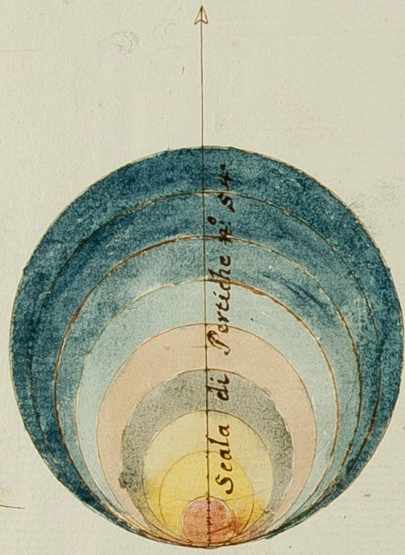 Scala di Pertiche n.º 54